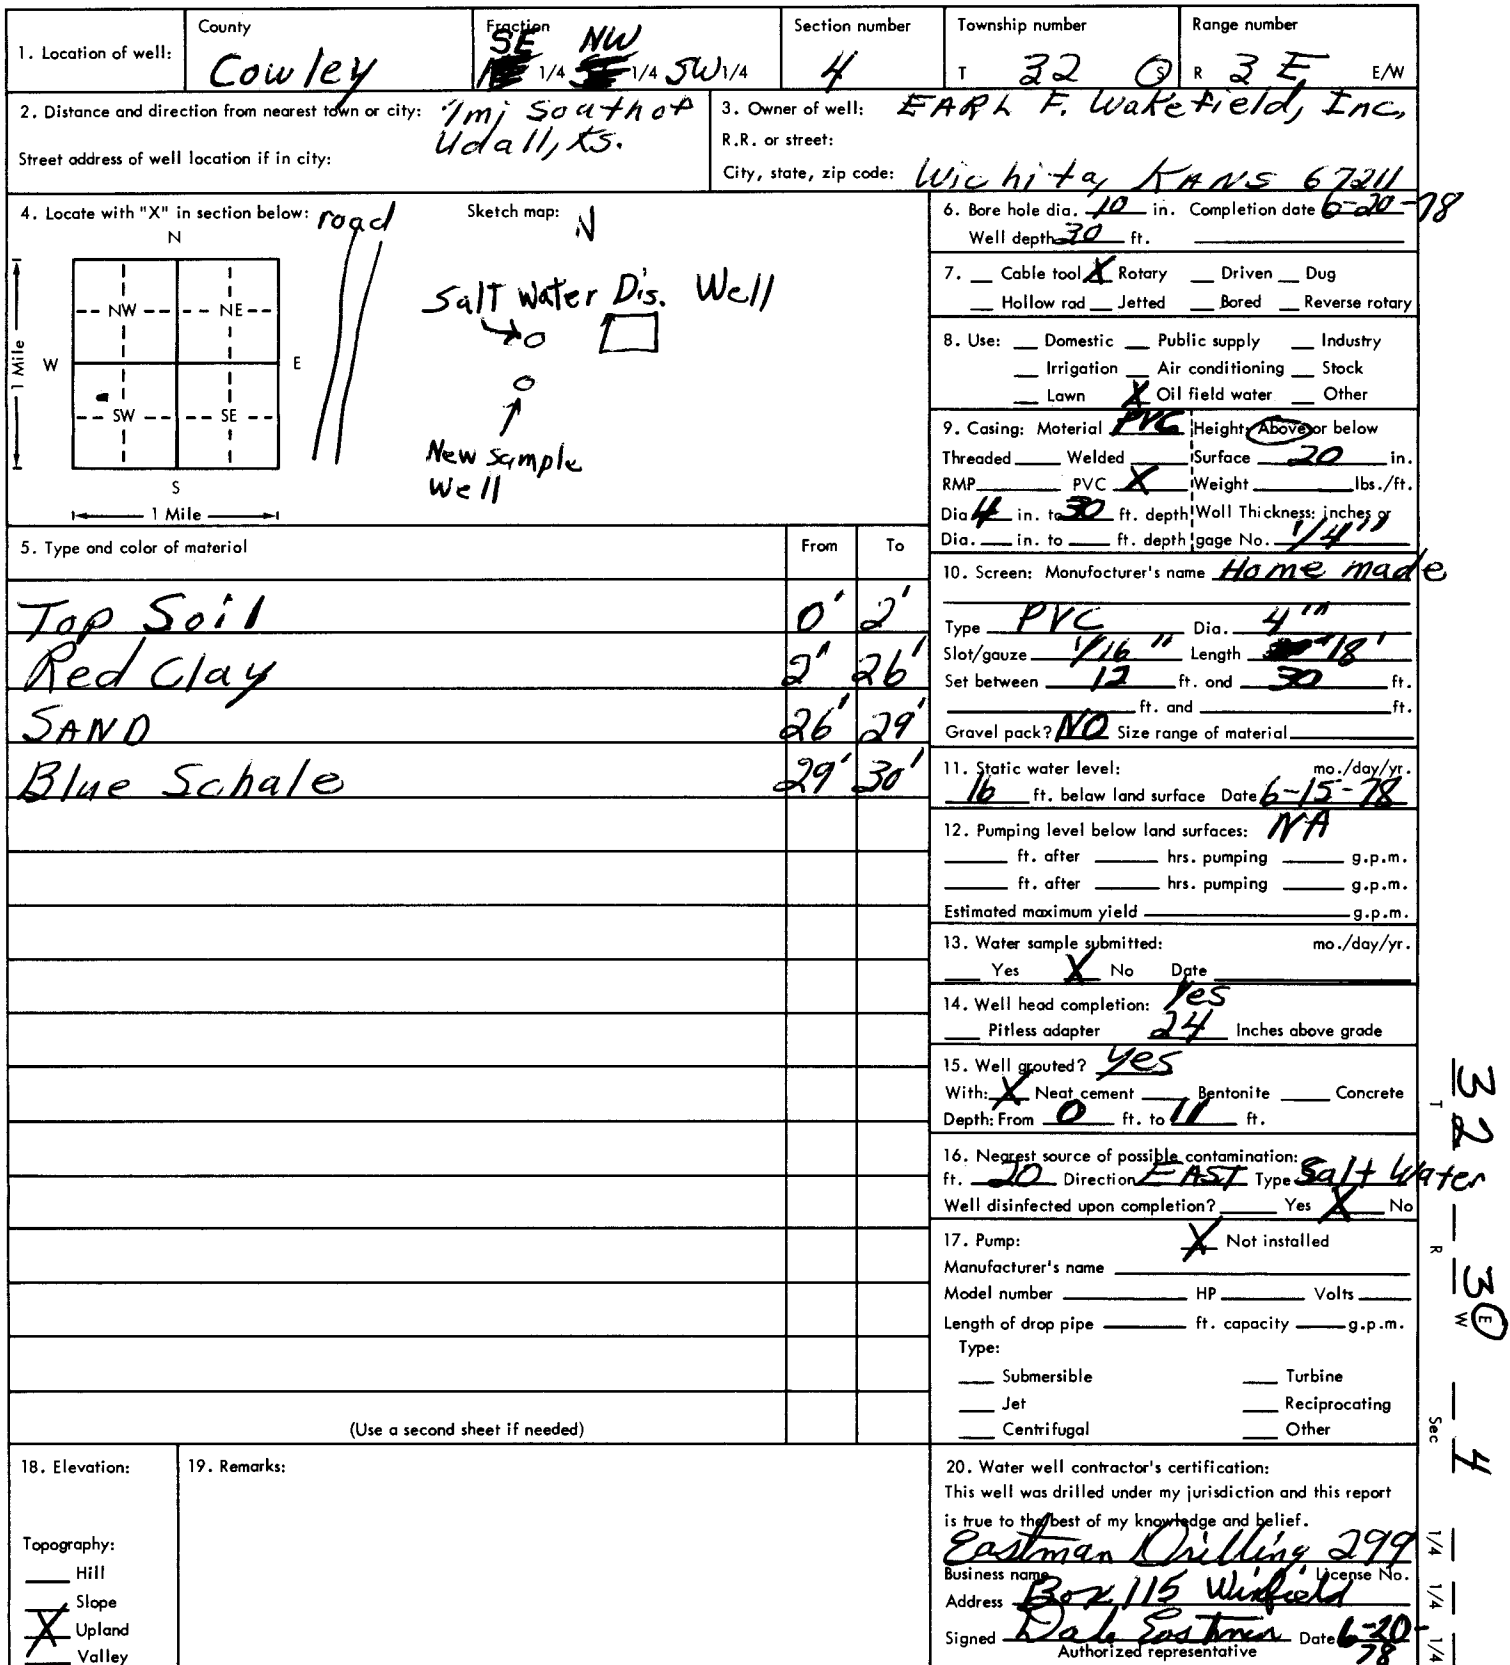 1. Location of well:
County
Cowley
Fraction
SE NW
1/4 1/4 SW 1/4
Section number
4
Township number
T 32 S
Range number
R 3 E E/W
2. Distance and direction from nearest town or city: 1mi South of
Udall, Ks.
Street address of well location if in city:
3. Owner of well: EARL F. Wakefield, Inc,
R.R. or street:
City, state, zip code: Wichita, KANS 67211
4. Locate with "X" in section below:
N
NW NE
W E
SW SE
S
1 Mile
1 Mile
road
Sketch map:
N
Salt Water Dis. Well
New sample
Well
5. Type and color of material From To
Top Soil 0' 2'
Red Clay 2' 26'
SAND 26' 29'
Blue Schale 29' 30'
(Use a second sheet if needed)
6. Bore hole dia. 10 in. Completion date 6-20-78
Well depth 30 ft.
7. Cable tool X Rotary Driven Dug
Hollow rod Jetted Bored Reverse rotary
8. Use: Domestic Public supply Industry
Irrigation Air conditioning Stock
Lawn X Oil field water Other
9. Casing: Material PVC Height: Above or below
Threaded Welded Surface 20 in.
RMP PVC X Weight lbs./ft.
Dia 4 in. to 30 ft. depth Wall Thickness: inches or
Dia. in. to ft. depth gage No. 1/4"
10. Screen: Manufacturer's name Home made
Type PVC Dia. 4"
Slot/gauze 1/16" Length 18'
Set between 12 ft. and 30 ft.
ft. and ft.
Gravel pack? NO Size range of material
11. Static water level: mo./day/yr.
16 ft. below land surface Date 6-15-78
12. Pumping level below land surfaces: NA
ft. after hrs. pumping g.p.m.
ft. after hrs. pumping g.p.m.
Estimated maximum yield g.p.m.
13. Water sample submitted: mo./day/yr.
Yes X No Date
14. Well head completion: Yes
Pitless adapter 24 Inches above grade
15. Well grouted? Yes
With: X Neat cement Bentonite Concrete
Depth: From 0 ft. to 11 ft.
16. Nearest source of possible contamination:
ft. 20 Direction EAST Type Salt Water
Well disinfected upon completion? Yes X No
17. Pump: X Not installed
Manufacturer's name
Model number HP Volts
Length of drop pipe ft. capacity g.p.m.
Type:
Submersible Turbine
Jet Reciprocating
Centrifugal Other
18. Elevation:
Topography:
Hill
Slope
X Upland
Valley
19. Remarks:
20. Water well contractor's certification:
This well was drilled under my jurisdiction and this report
is true to the best of my knowledge and belief.
Eastman Drilling 299
Business name License No.
Address Box 115 Winfield
Signed Dale Eastman Date 6-20-78
Authorized representative
T 32 R 3 E W Sec 4 1/4 1/4 1/4